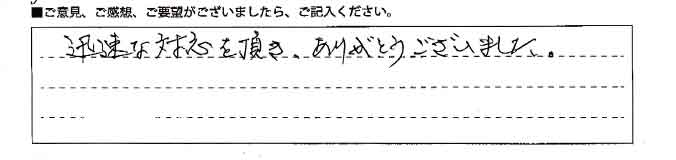 ■ご意見、ご感想、ご要望がございましたら、ご記入ください。
迅速な対応を頂き、ありがとうございました。